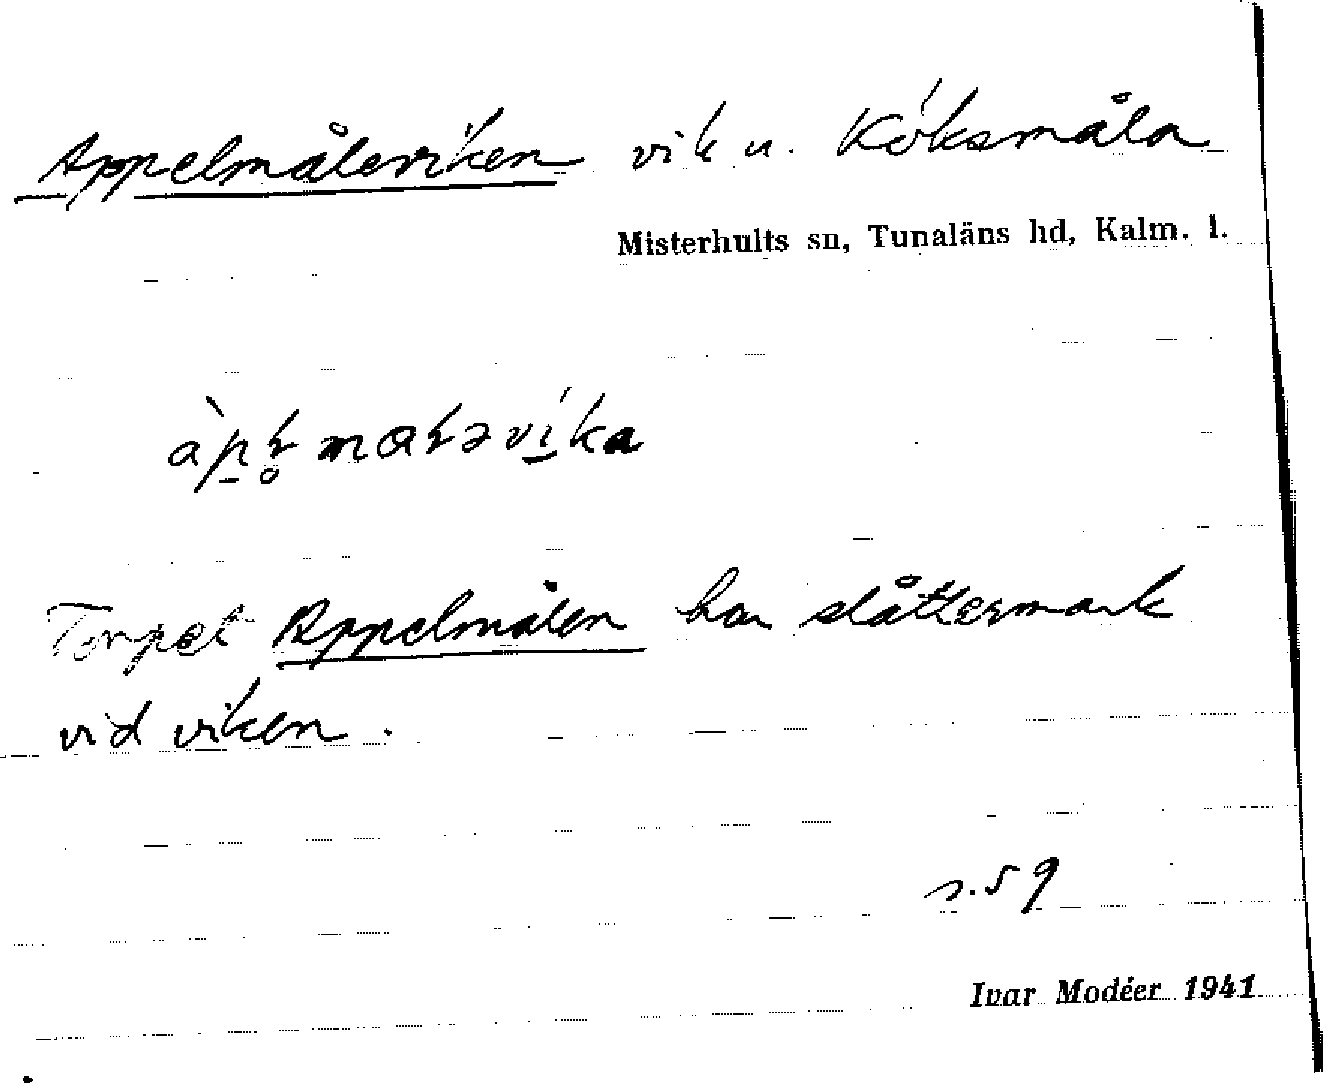 Appelmåleviken vik u. Köksmåla
Misterhults sn, Tunaläns hd, Kalm. l.
Torpet Appelmålen har slåttermark
vid viken.
s. 59
Ivar Modéer 1941